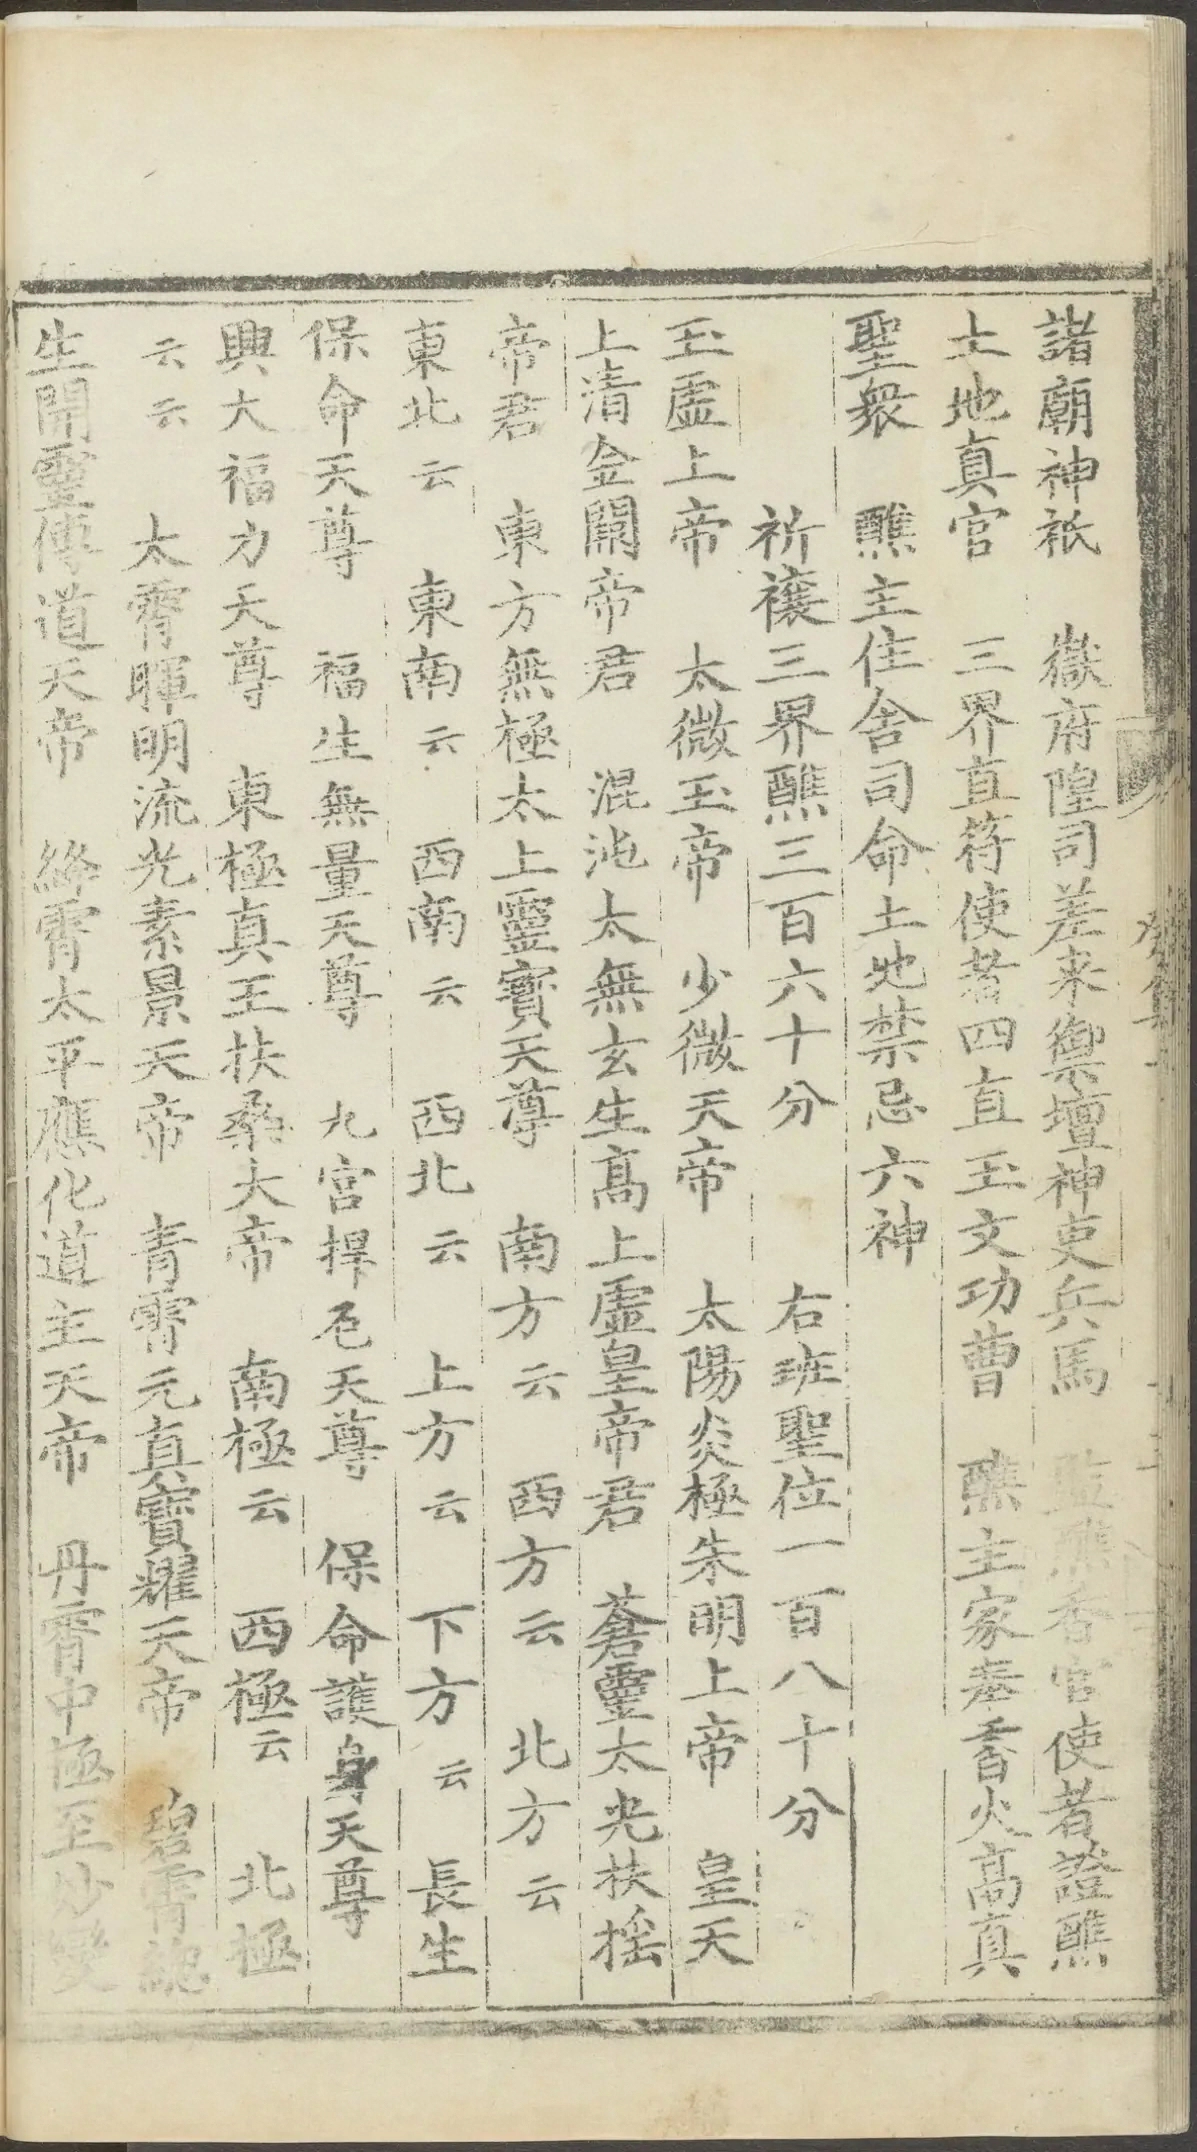 諸廟神祇　嶽府隍司差来禦壇神吏兵馬　監醮香官使者證醮
土地真官　三界直符使者四直玉文功曹　醮主家奉香火高真
聖衆　醮主住舍司命土地禁忌六神
祈禳三界醮三百六十分　右班聖位一百八十分
玉虛上帝　太微玉帝　少微天帝　太陽炎極朱明上帝　皇天
上清金闕帝君　混沌太無玄生高上虛皇帝君　蒼靈太光扶揺
帝君　東方無極太上靈寶天尊　南方云　西方云　北方云
東北云　東南云　西南云　西北云　上方云　下方云　長生
保命天尊　福生無量天尊　九宮捍厄天尊　保命護身天尊
興大福力天尊　東極真王扶桑大帝　南極云　西極云　北極
云云　太霄暉明流光素景天帝　青霄元真寶耀天帝　碧霄總
生開靈傳道天帝　絳霄太平應化道主天帝　丹霄中極至妙變